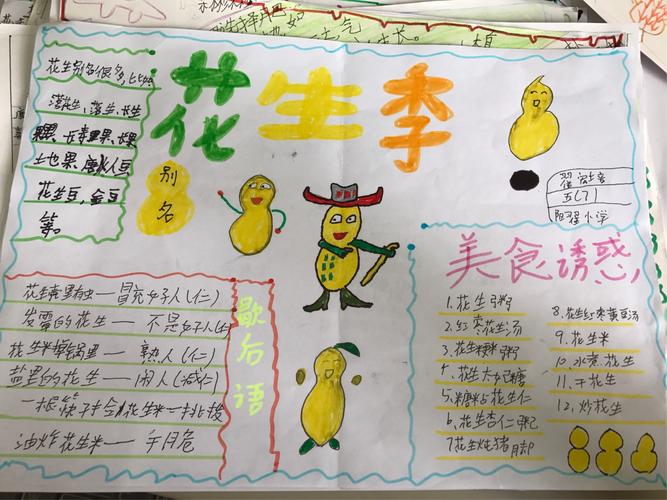 花生季
花生别名很多,比如
落花生、落生、长生
果、长寿果、长果
土地果、唐人豆
花生豆、金豆
等。
别名
五(7)
小学
歇后语
冒充好人(仁)
发霉的花生——不是好人(仁)
熟人(仁)
盐里的花生——闲人(咸仁)
一根筷子拿花生米——挑拨
油炸花生米——干
美食诱惑
1.花生粥
2.红枣花生汤
3.花生粳米粥
4.花生大
5.糯米
花生仁
6.花生杏仁粥
7.花生炖猪脚
8.花生红枣黄豆汤
9.花生米
10.水煮花生
11.干花生
12.炒花生